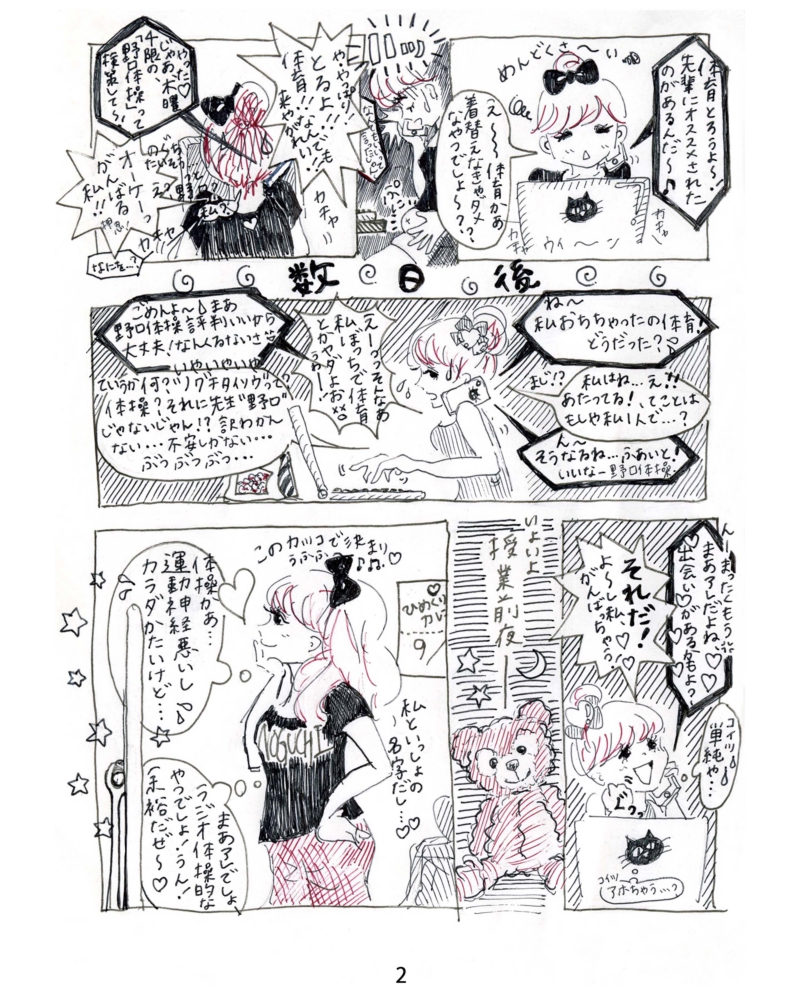 体育とろうよ〜！
先輩にオススメされた
のがあるんだ〜
めんどくさ〜い
え〜〜体育かあ
着替えなきゃダメ
なやつでしょ〜？？
カチャ
カチャ
ウィ〜ン
ややっぱり
とるよ…！
体育!!なんでも
来やがれい!!
やった♡
じゃあ木曜
4限の
「野口体操」って
検索して〜！
オーケーっ
がんばる
私!!
カチャ
カチャ
なにを…？
数日後
ね〜
私おちちゃったの体育！
どうだった？
まじ!?
私はね…え!!
あたってる！、てことは
もしや私1人で…？
ん〜
そうなるね…ふぁいと！
いいな〜野口体操
えーっっそんなあ
私ぼっちで体育
とかヤダよお
ごめんよ〜まあ
野口体操評判いいから
大丈夫！なんくるないさ
いやいやいや
ていうか何？ノグチタイソウって
体操？それに先生“野口”
じゃないじゃん!?訳わかん
ない…不安しかない…
ぶつぶつぶつ…
んーまったくもう
まあアレだよね、
出会い♡があるかもよ？
それだ！
よ〜し私
がんばっちゃう
コイツ
単純や…
コイツ
アホちゃう…？
いよいよ
授業前夜
このカッコで決まり♡
うふふ
ひめくり
カレ
9
体操かぁ…
運動神経悪いし
カラダかたいけど…
NOGUCHI
私といっしょの
名字だし…♡♡
まあアレでしょ
ラジオ体操的な
やつでしょ！うん！
余裕だぜ〜♡
2